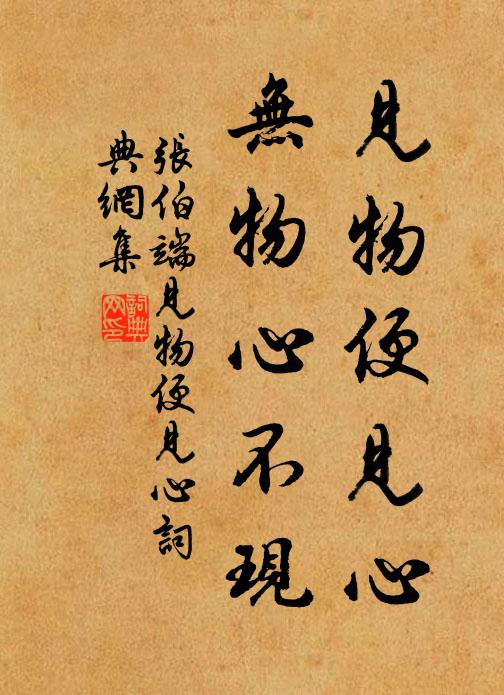 見物便見心
無物心不現
張伯端見物便見心詞
典網集
詞典網印